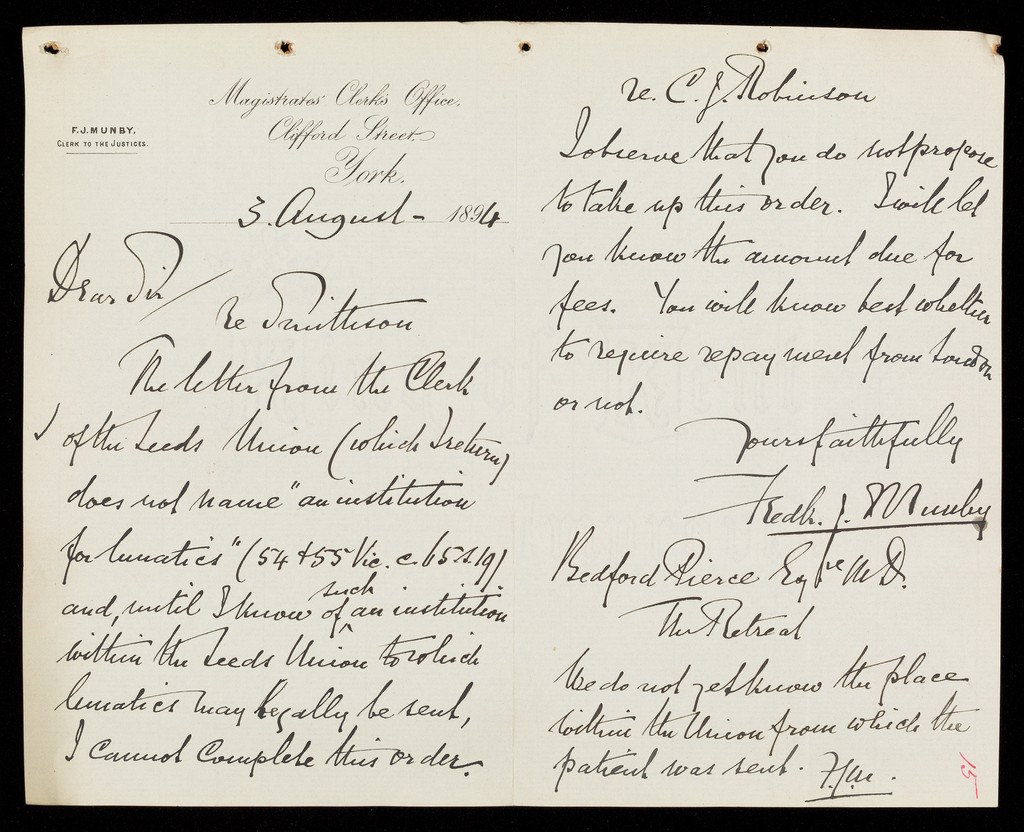 F.J. MUNBY,
CLERK TO THE JUSTICES.
Magistrates' Clerk's Office,
Clifford Street,
York.
3. August - 1894
Dear Sir/
Re Smithson
The letter from the Clerk
of the Leeds Union (which I return)
does not name "an institution
for lunatics" (54 & 55 Vic. c. 65 s. 19)
and, until I know of such an institution
within the Leeds Union to which
lunatics may legally be sent,
I cannot complete this order.
re. C. J. Robinson
I observe that you do not propose
to take up this order. I will let
you know the amount due for
fees. You will know best whether
to require repayment from London
or not.
Yours faithfully
Fredk. J. Munby
Bedford Pierce Esqre M.D.
The Retreat
We do not yet know the place
within the Union from which the
patient was sent. F.J.M.
15